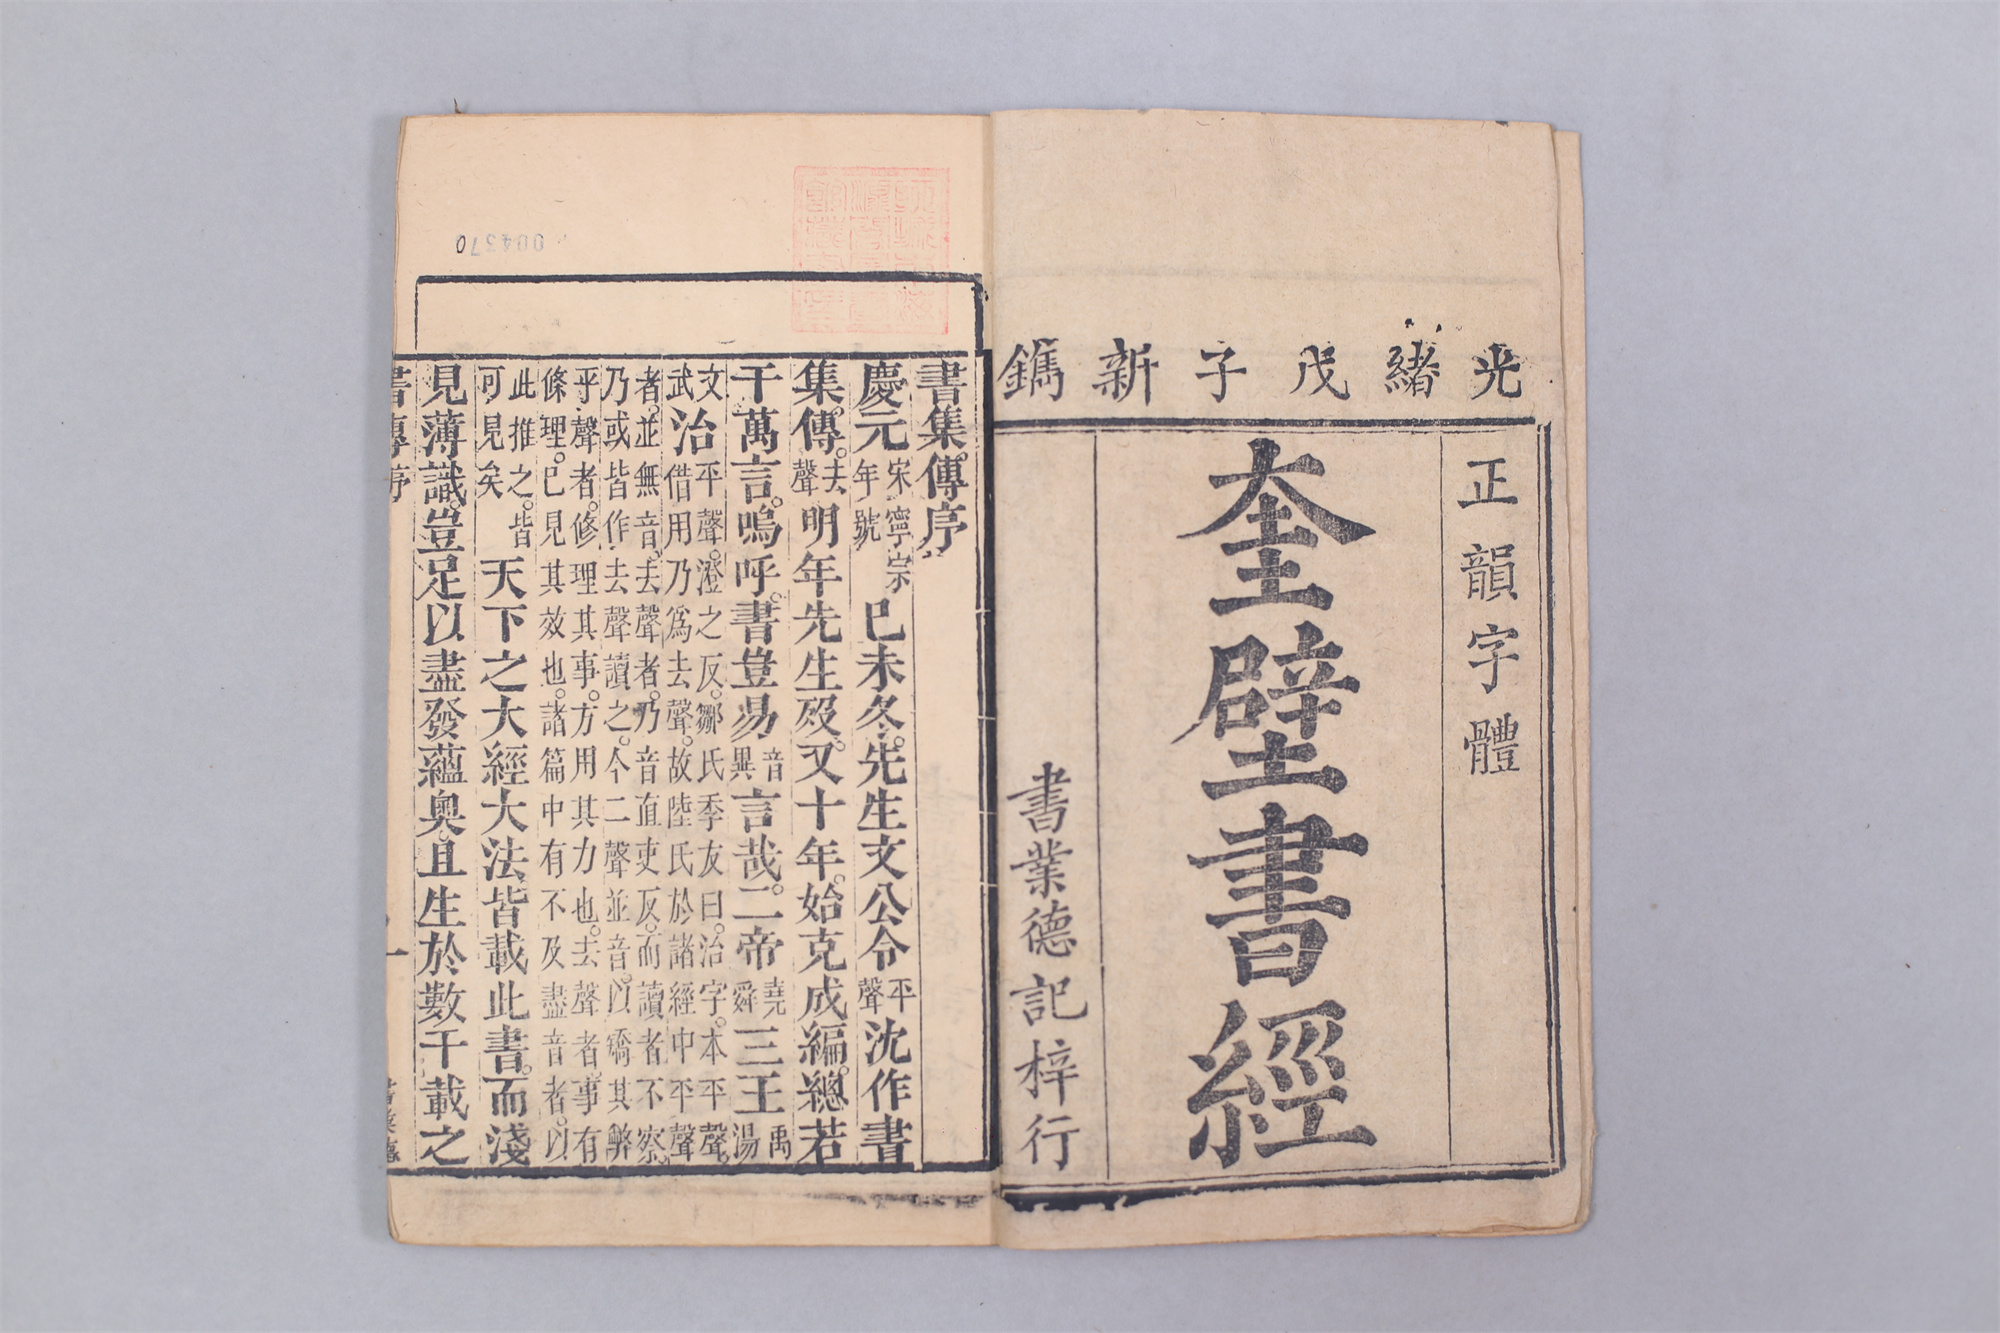 光緒戊子新鐫
正韻字體
奎壁書經
書業德記梓行
書集傳序
慶元宋寧宗年號已未冬先生文公令平聲沈作書
集傳去聲明年先生歿又十年始克成編總若
干萬言嗚呼書豈易音異言哉二帝堯舜三王禹湯
文武治平聲澄之反鄒氏季友曰治字本平聲借用乃爲去聲故陸氏於諸經中平聲
者並無音去聲者乃音直吏反而讀者不察乃或皆作去聲讀之今二聲並音以矯其弊
平聲者修理其事方用其力也去聲者事有條理已見其效也諸篇中有不及盡音者以
此推之皆可見矣天下之大經大法皆載此書而淺
見薄識豈足以盡發蘊奥且生於數千載之
書傳序
一
書業德
004370